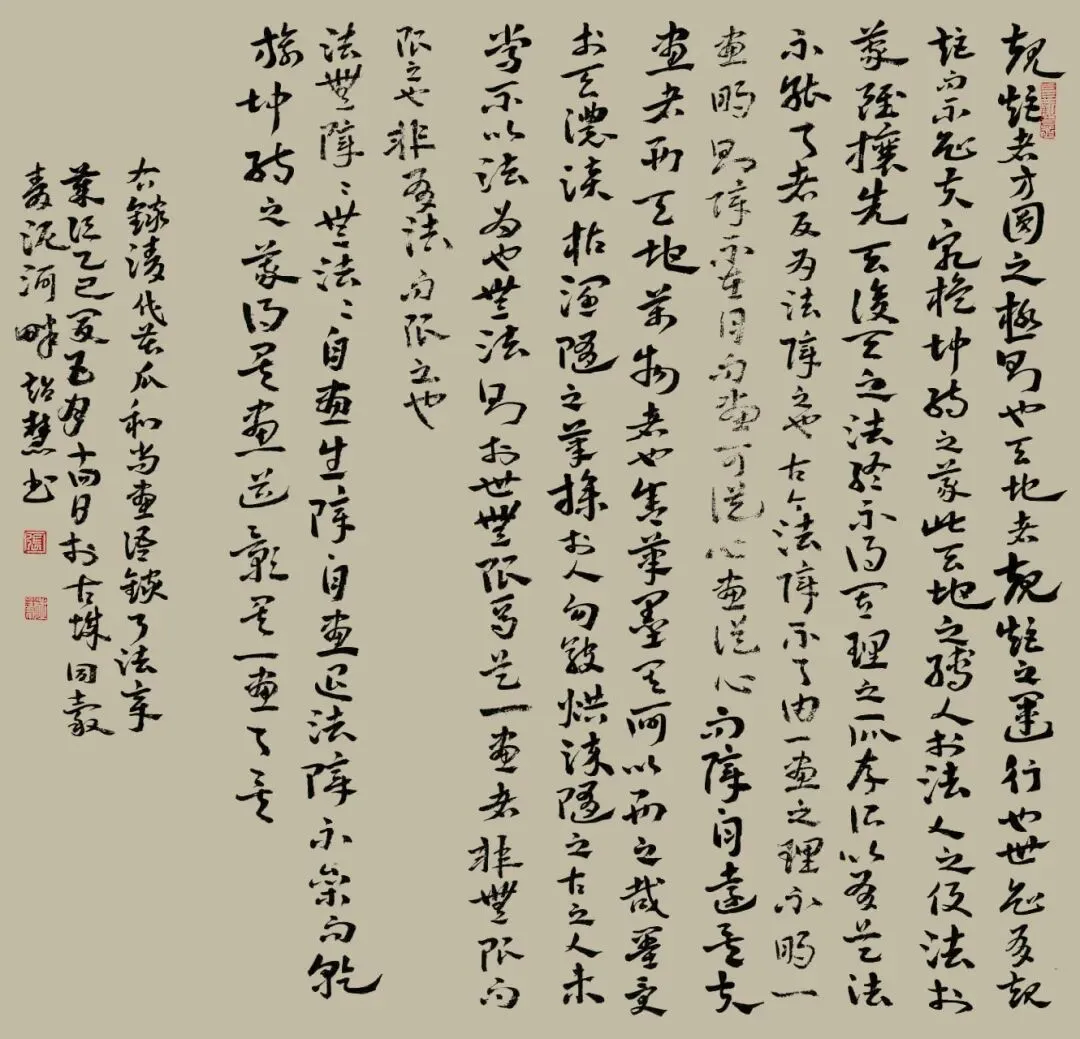 規矩者方圓之極則也天地者規矩之運行也世知有規
矩而不知夫乾旋坤轉之義此天地之縛人於法人之役法於
蒙雖攘先天後天之法終不得其理之所存所以有是法
不能了者反為法障之也古今法障不了由一畫之理不明一
畫明則障不在目而畫可從心畫從心而障自遠矣夫
畫者形天地萬物者也舍筆墨其何以形之哉墨受
於天濃淡枯潤隨之筆操於人勾皴烘染隨之古之人未
嘗不以法為也無法則於世無限焉是一畫者非無限而
限之也非有法而限之也
法無障〻無法〻自畫生障自畫退法障不參而乾
旋坤轉之義得矣畫道彰矣一畫了矣
右錄清代苦瓜和尚畫語錄了法章
次乙巳夏五月十四日於古城同穀
泥河畔紹慧書
張